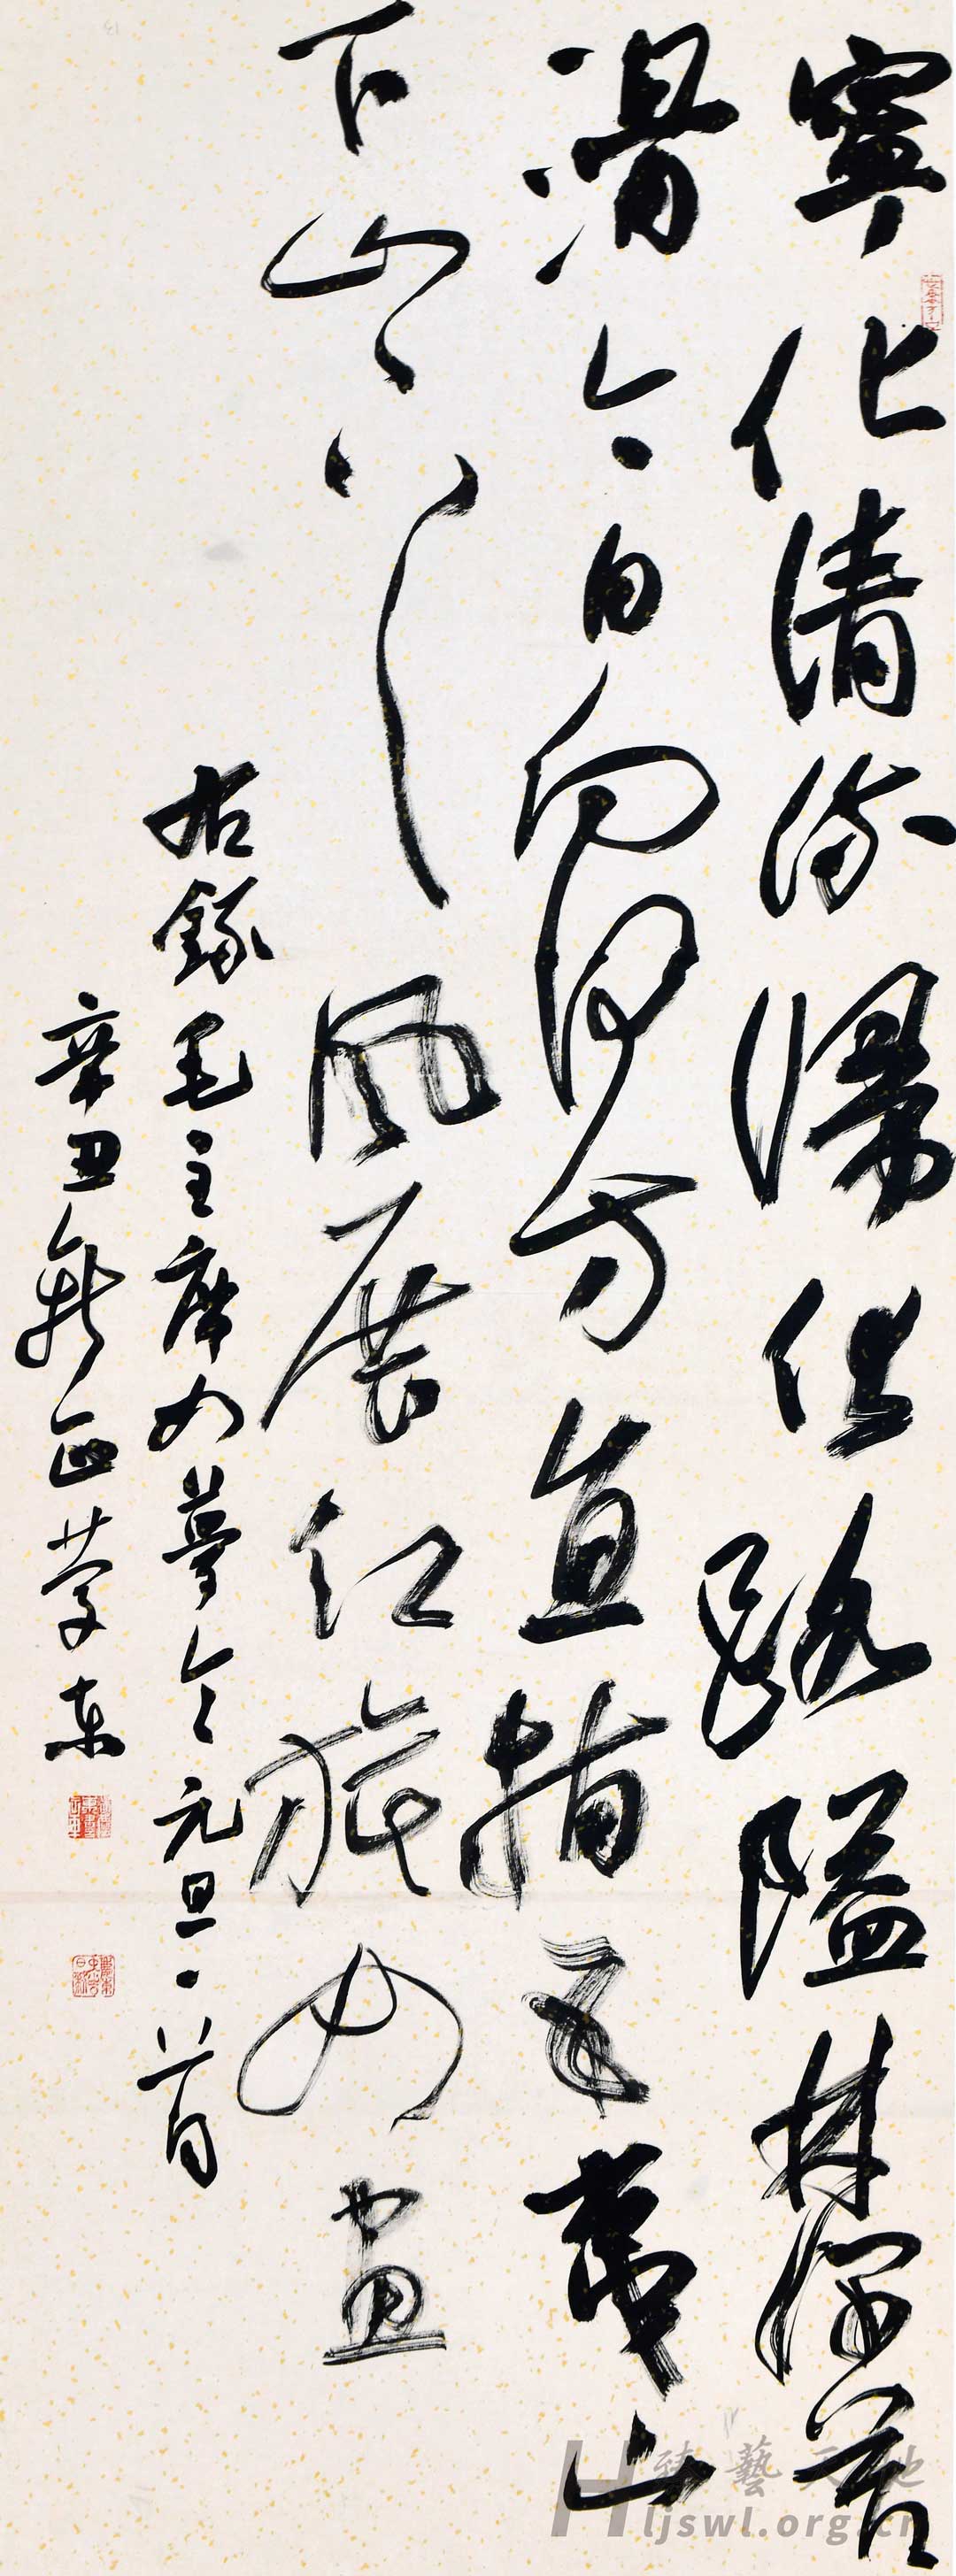 寧化清流歸化路隘林深苔
滑今日向何方直指武夷山
下山下山下風展紅旗如畫
右録毛主席如夢令元旦一首
辛丑新正東
藝天地
Hljswl.org.cn